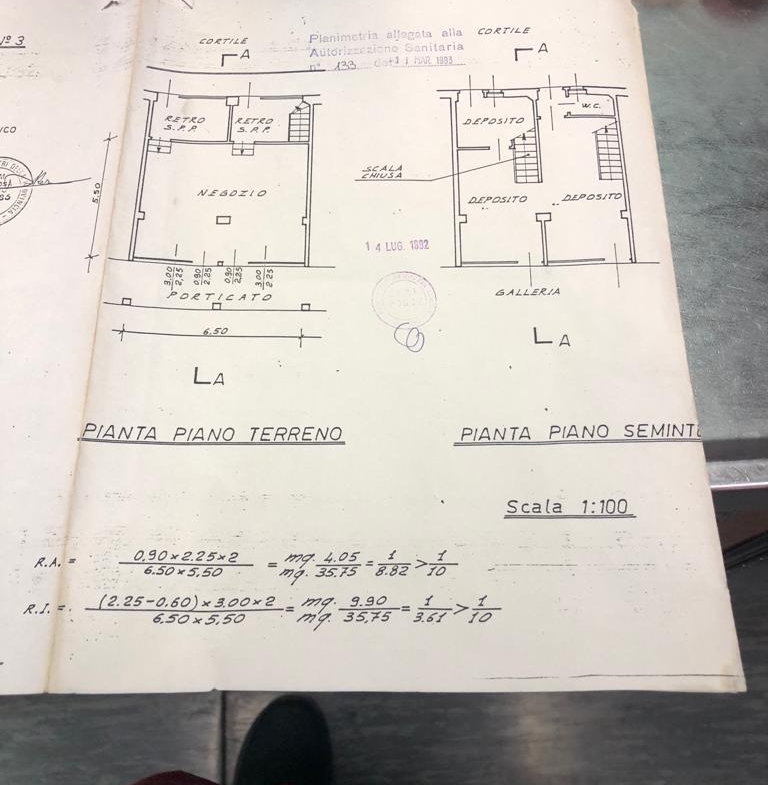 Nº 3
CORTILE
A
Planimetria allegata alla
Autorizzazione Sanitaria
nº 133 del 1 MAR. 1993
CORTILE
A
RETRO
S.P.P.
RETRO
S.P.P.
NEGOZIO
5,50
3,00
2,25
0,90
2,25
0,90
2,25
3,00
2,25
PORTICATO
6,50
A
PIANTA PIANO TERRENO
W.C.
DEPOSITO
SCALA
CHIUSA
DEPOSITO
DEPOSITO
14 LUG. 1992
GALLERIA
A
PIANTA PIANO SEMINT
Scala 1:100
R.A. = 0,90 x 2.25 x 2 / 6.50 x 5,50 = mq. 4.05 / mq. 35.75 = 1 / 8.82 > 1 / 10
R.I. = (2.25-0.60) x 3.00 x 2 / 6.50 x 5,50 = mq. 9.90 / mq. 35,75 = 1 / 3.61 > 1 / 10